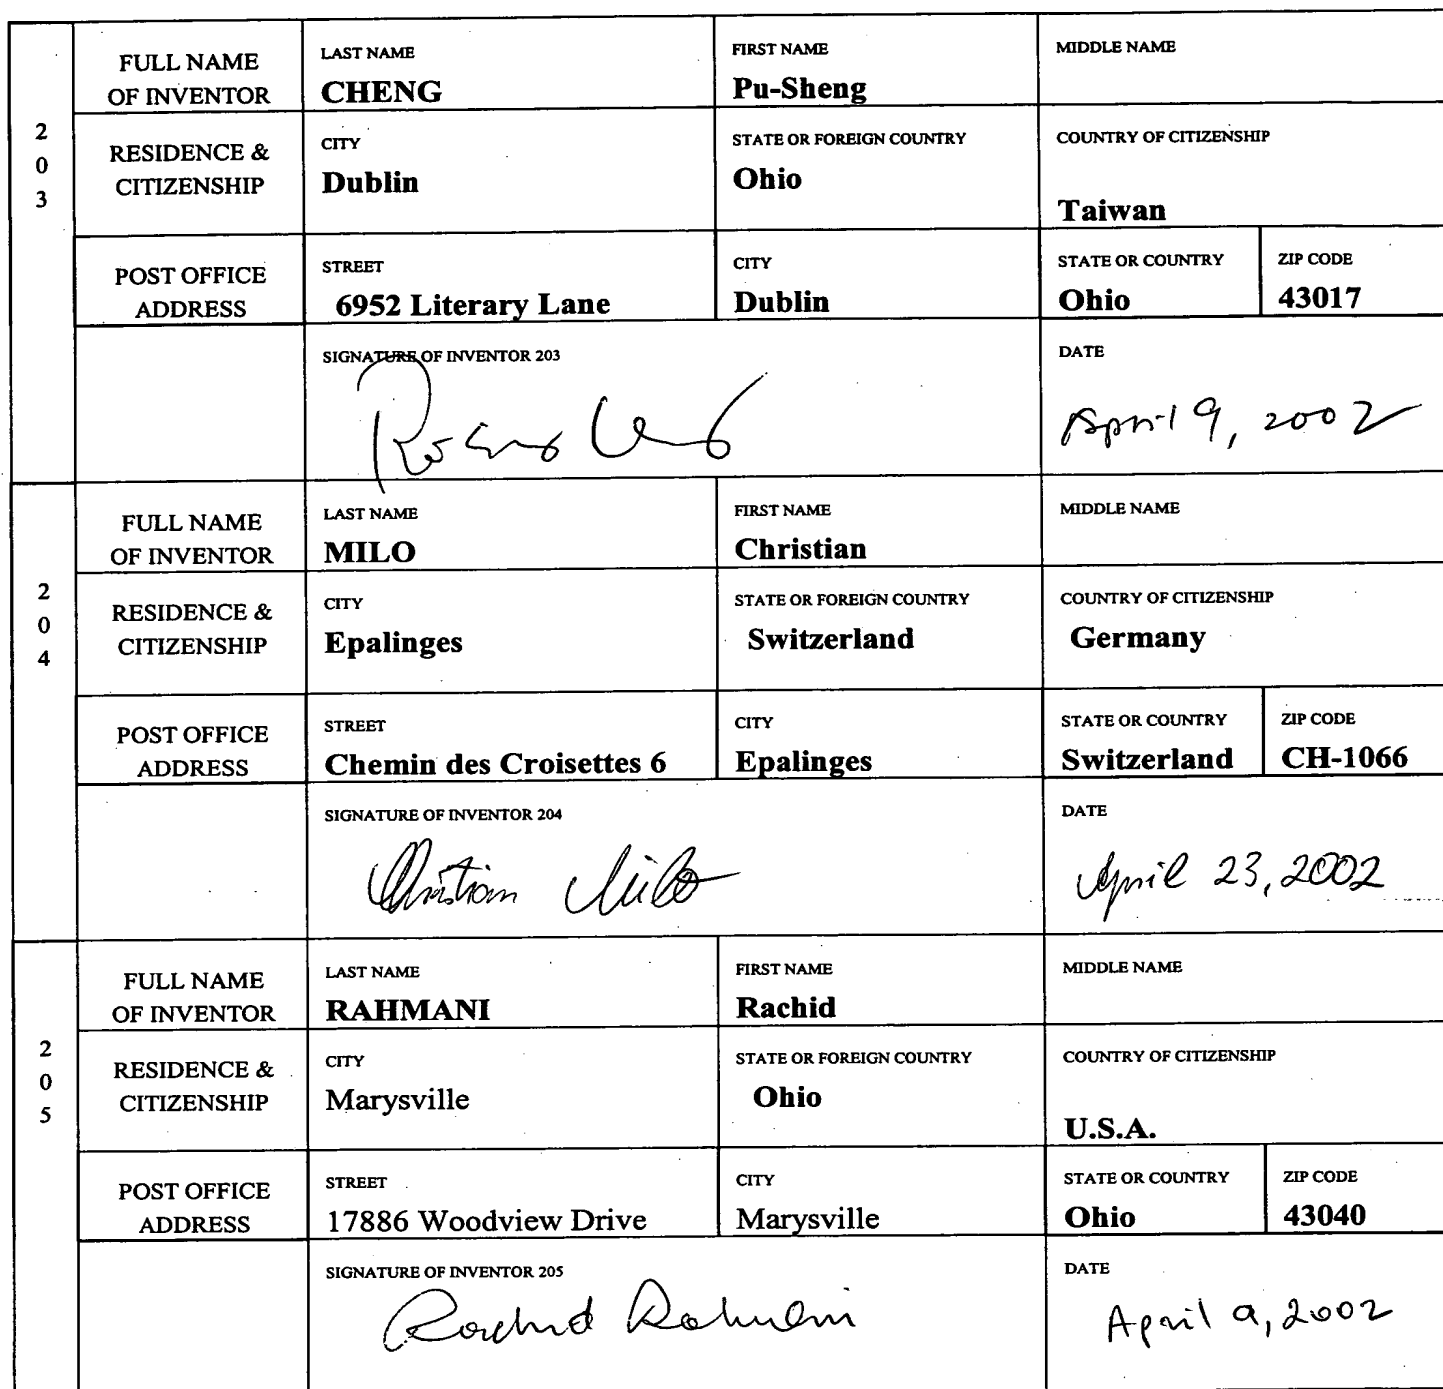 2 0 3
FULL NAME OF INVENTOR
LAST NAME
CHENG
FIRST NAME
Pu-Sheng
MIDDLE NAME
RESIDENCE & CITIZENSHIP
CITY
Dublin
STATE OR FOREIGN COUNTRY
Ohio
COUNTRY OF CITIZENSHIP
Taiwan
POST OFFICE ADDRESS
STREET
6952 Literary Lane
CITY
Dublin
STATE OR COUNTRY
Ohio
ZIP CODE
43017
SIGNATURE OF INVENTOR 203
DATE
April 9, 2002
2 0 4
FULL NAME OF INVENTOR
LAST NAME
MILO
FIRST NAME
Christian
MIDDLE NAME
RESIDENCE & CITIZENSHIP
CITY
Epalinges
STATE OR FOREIGN COUNTRY
Switzerland
COUNTRY OF CITIZENSHIP
Germany
POST OFFICE ADDRESS
STREET
Chemin des Croisettes 6
CITY
Epalinges
STATE OR COUNTRY
Switzerland
ZIP CODE
CH-1066
SIGNATURE OF INVENTOR 204
Christian Milo
DATE
April 23, 2002
2 0 5
FULL NAME OF INVENTOR
LAST NAME
RAHMANI
FIRST NAME
Rachid
MIDDLE NAME
RESIDENCE & CITIZENSHIP
CITY
Marysville
STATE OR FOREIGN COUNTRY
Ohio
COUNTRY OF CITIZENSHIP
U.S.A.
POST OFFICE ADDRESS
STREET
17886 Woodview Drive
CITY
Marysville
STATE OR COUNTRY
Ohio
ZIP CODE
43040
SIGNATURE OF INVENTOR 205
Rachid Rahmani
DATE
April 9, 2002